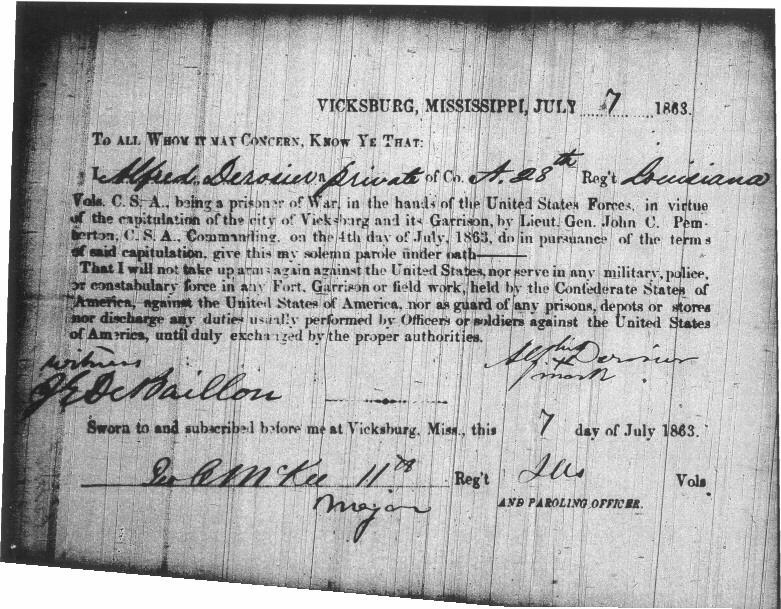 VICKSBURG, MISSISSIPPI, JULY 7 1863.
TO ALL WHOM IT MAY CONCERN, KNOW YE THAT:
I Alfred Derosier a private of Co. A. 28th Reg't Louisiana
Vols. C. S. A., being a prisoner of War, in the hands of the United States Forces, in virtue
of the capitulation of the city of Vicksburg and its Garrison, by Lieut. Gen. John C. Pem-
berton, C. S. A., Commanding, on the 4th day of July, 1863, do in pursuance of the terms
of said capitulation, give this my solemn parole under oath——
That I will not take up arms again against the United States, nor serve in any military, police,
or constabulary force in any Fort, Garrison or field work, held by the Confederate States of
America, against the United States of America, nor as guard of any prisons, depots or stores
nor discharge any duties usually performed by Officers or soldiers against the United States
of America, until duly exchanged by the proper authorities.
witness
his
Derosier
x
mark
DeBaillon
Sworn to and subscribed before me at Vicksburg, Miss., this 7 day of July 1863.
Geo C McKee 11th Reg't Ills Vols
Major
AND PAROLING OFFICER.